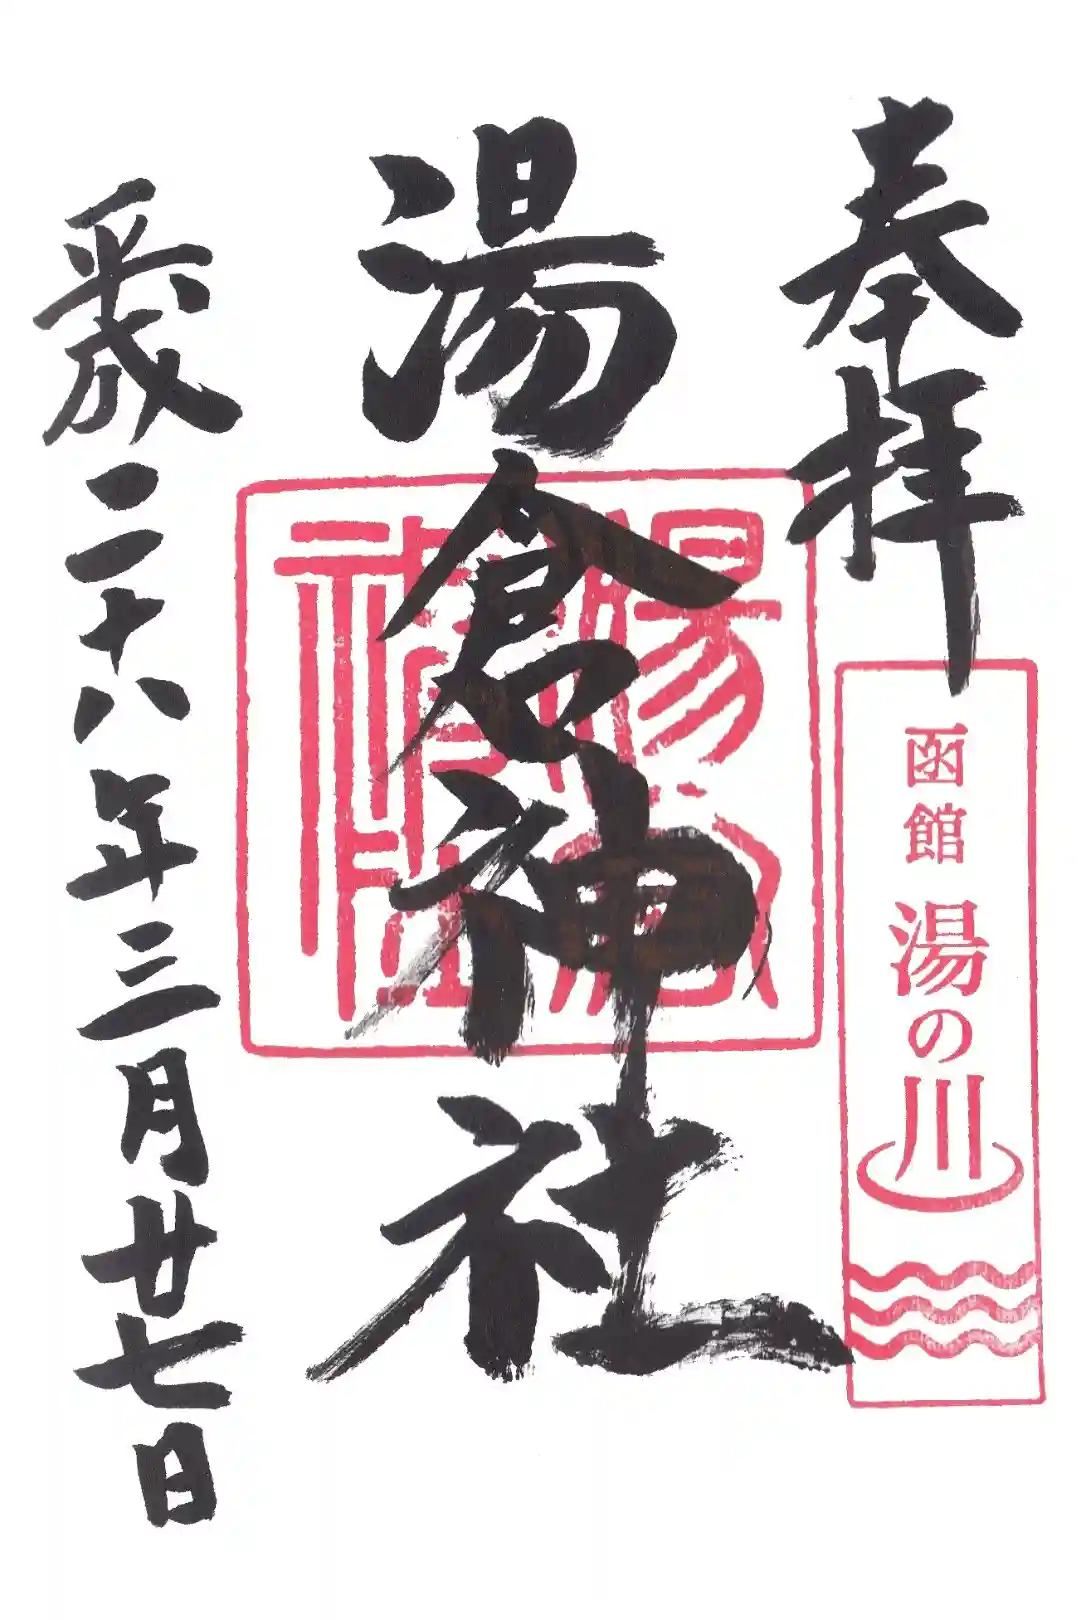 奉拝
函館 湯の川
湯倉神社
平成二十八年三月廿七日